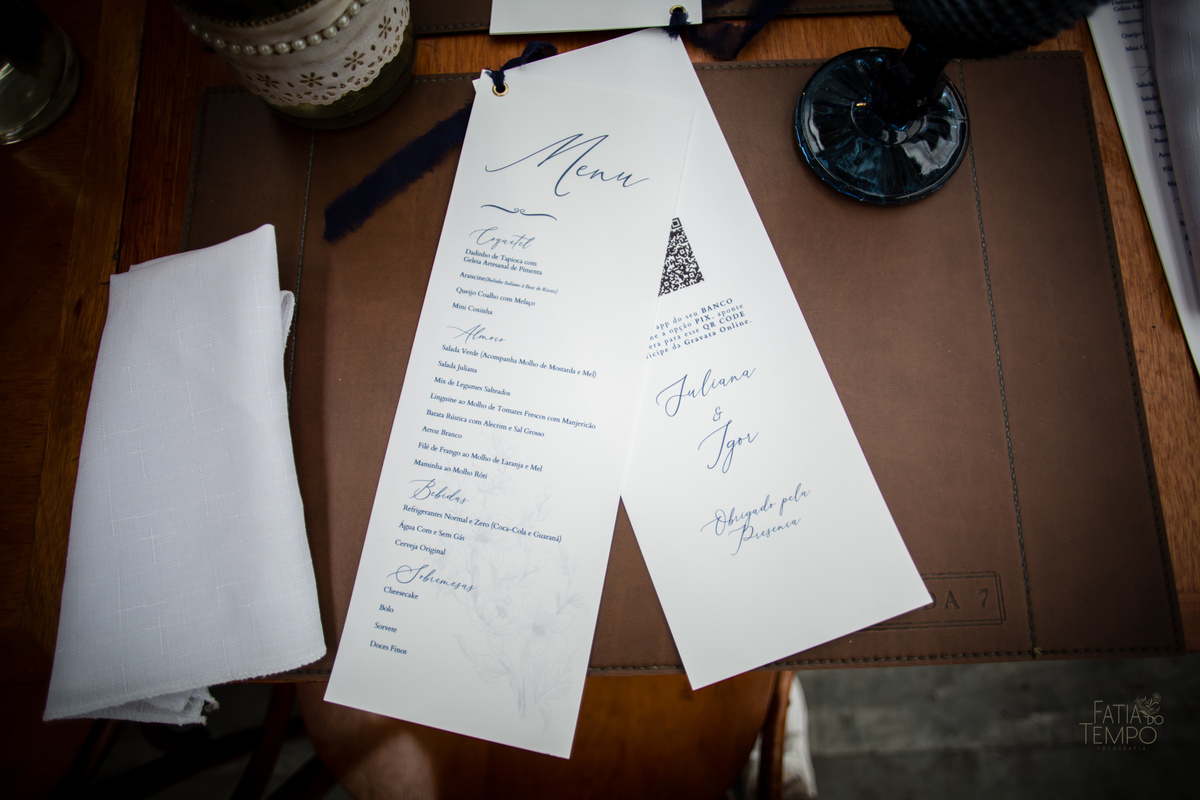 Menu
Coquetel
Dadinho de Tapioca com
Geleia Artesanal de Pimenta
Arancine (Bolinho Italiano à Base de Risoto)
Queijo Coalho com Melaço
Mini Coxinha
Almoço
Salada Verde (Acompanha Molho de Mostarda e Mel)
Salada Juliana
Mix de Legumes Salteados
Linguine ao Molho de Tomates Frescos com Manjericão
Batata Rústica com Alecrim e Sal Grosso
Arroz Branco
Filé de Frango ao Molho de Laranja e Mel
Maminha ao Molho Rôti
Bebidas
Refrigerantes Normal e Zero (Coca-Cola e Guaraná)
Água Com e Sem Gás
Cerveja Original
Sobremesas
Cheesecake
Bolo
Sorvete
Doces Finos
app do seu BANCO
a opção PIX, aponte
para esse QR CODE
da Gravata Online.
Juliana
&
Igor
Obrigado pela
Presença
DA 7
FATIA DO
TEMPO
FOTOGRAFIA